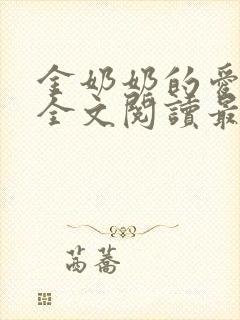 金奶奶的愛
全文閱讀最
芮蕎